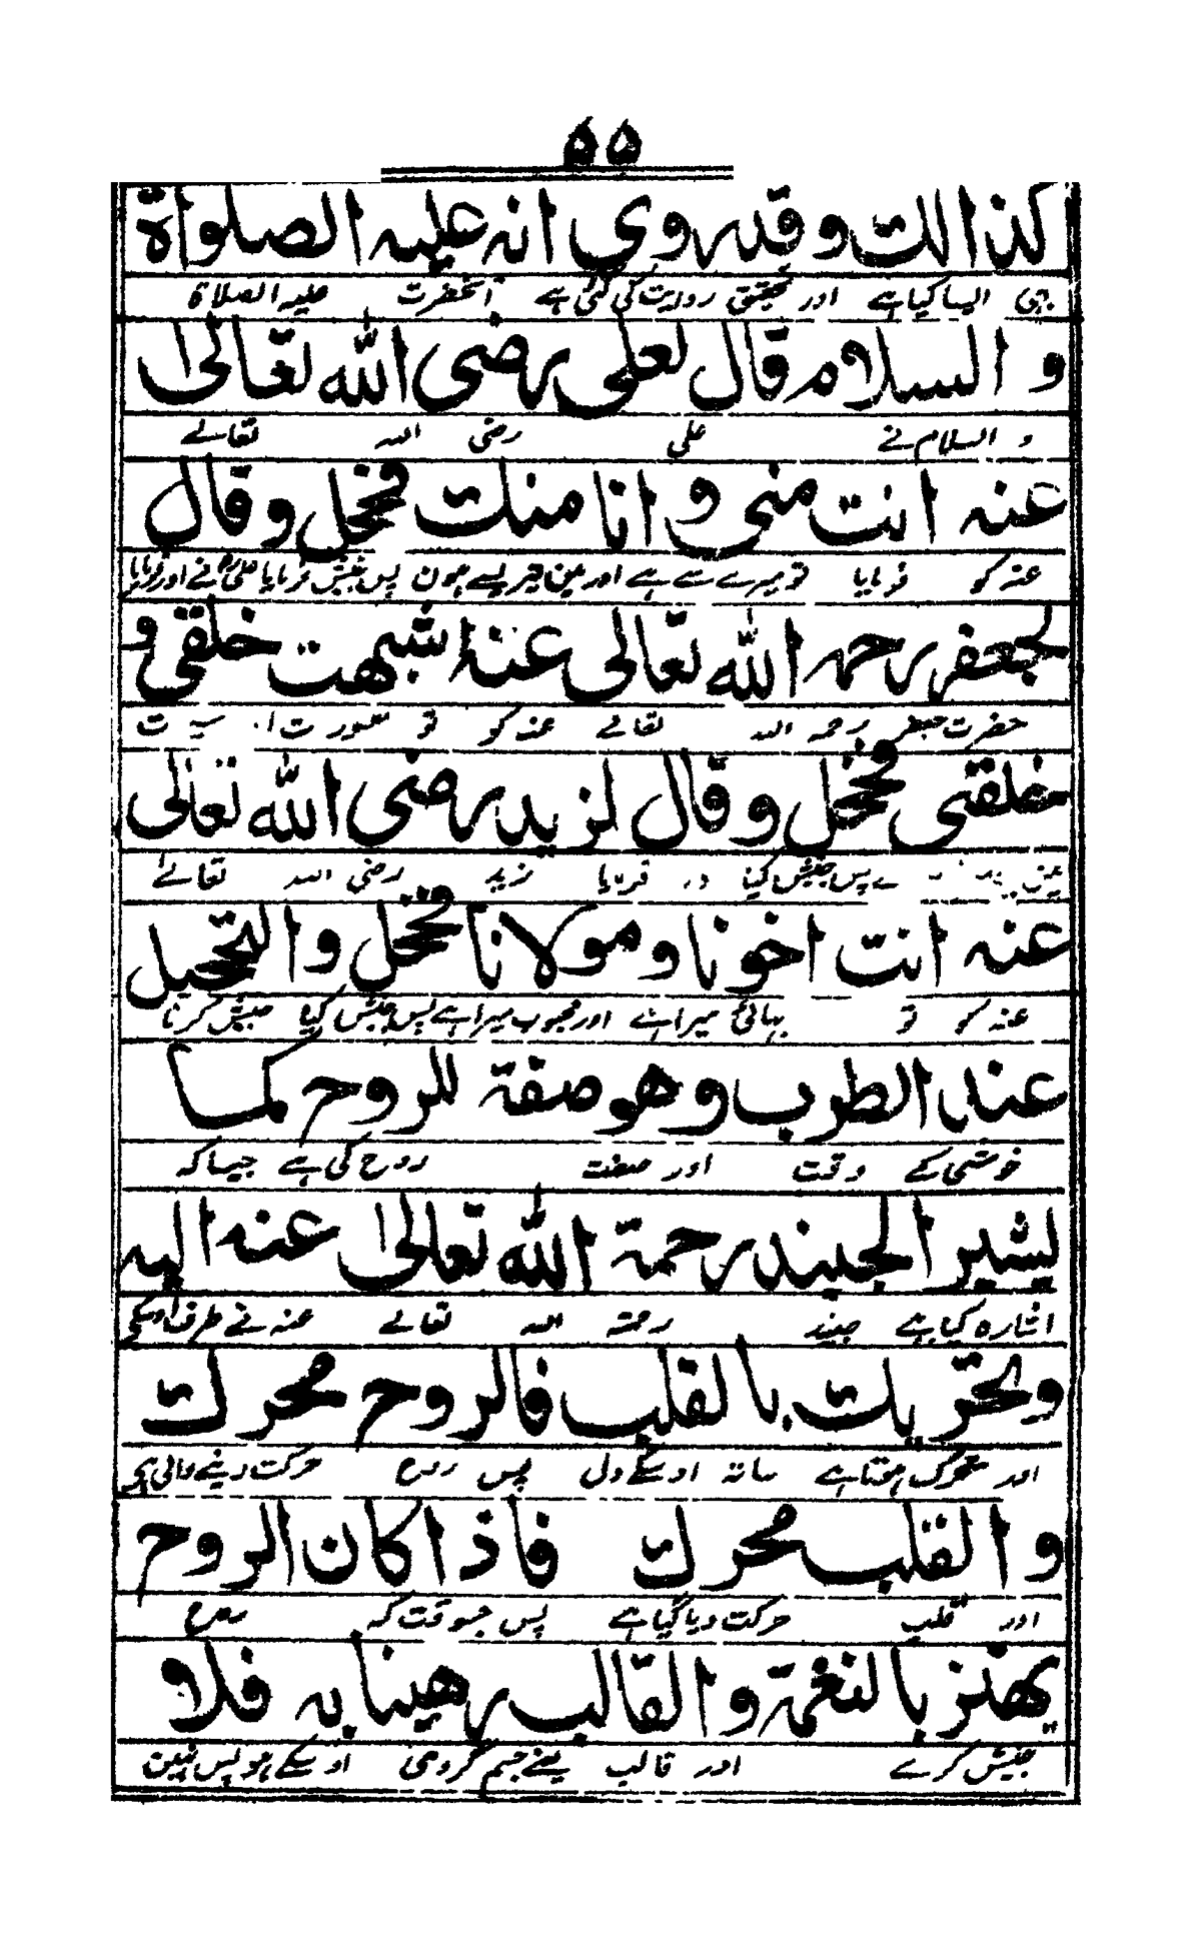 ۵۵
کذالک وقد روی انه علیه الصلواة
بھی ایسا کیا ہے اور تحقیق روایت کی گئی ہے آنحضرت علیہ الصلاة
و السلام قال لعلی رضی الله تعالیٰ
و السلام نے علی رضی اللہ تعالے
عنه انت منی و انا منک فحجل وقال
عنہ کو فرمایا تو میرے سے ہے اور مین تیرے سے ہون پس جنبش فرمایا علی نے اور فرمایا
لجعفر رحمه الله تعالی عنه اشبهت خلقی و
حضرت جعفر رحمہ اللہ تعالے عنہ کو تو صورت
خلقی فحجل وقال لزید رضی الله تعالی
پس جنبش کیا فرمایا زید رضی اللہ تعالے
عنه انت اخونا و مولانا فحجل والتحجیل
عنہ کو تو بھائی میرا ہے اور محبوب میرا ہے پس جنبش کیا جنبش کرنا
عند الطرب وهو صفة للروح کما
خوشی کے وقت اور صفت روح کی ہے جیسا کہ
یشیر الجنید رحمة الله تعالیٰ عنه الیه
اشارہ کیا ہے جنید رحمتہ اللہ تعالے عنہ نے طرف اوسکی
وتحریک بالقلب فالروح محرک
اور متحرک ہوتا ہے ساتہ اوسکے دل پس روح حرکت دینے والی ہے
والقلب محرک فاذا کان الروح
اور قلب حرکت دیا گیا ہے پس جسوقت کہ روح
یهتز بالنغمة والقالب رهینا به فلا
جنبش کرے اور قالب یعنے جسم گروی اوسکے ہو پس نہین